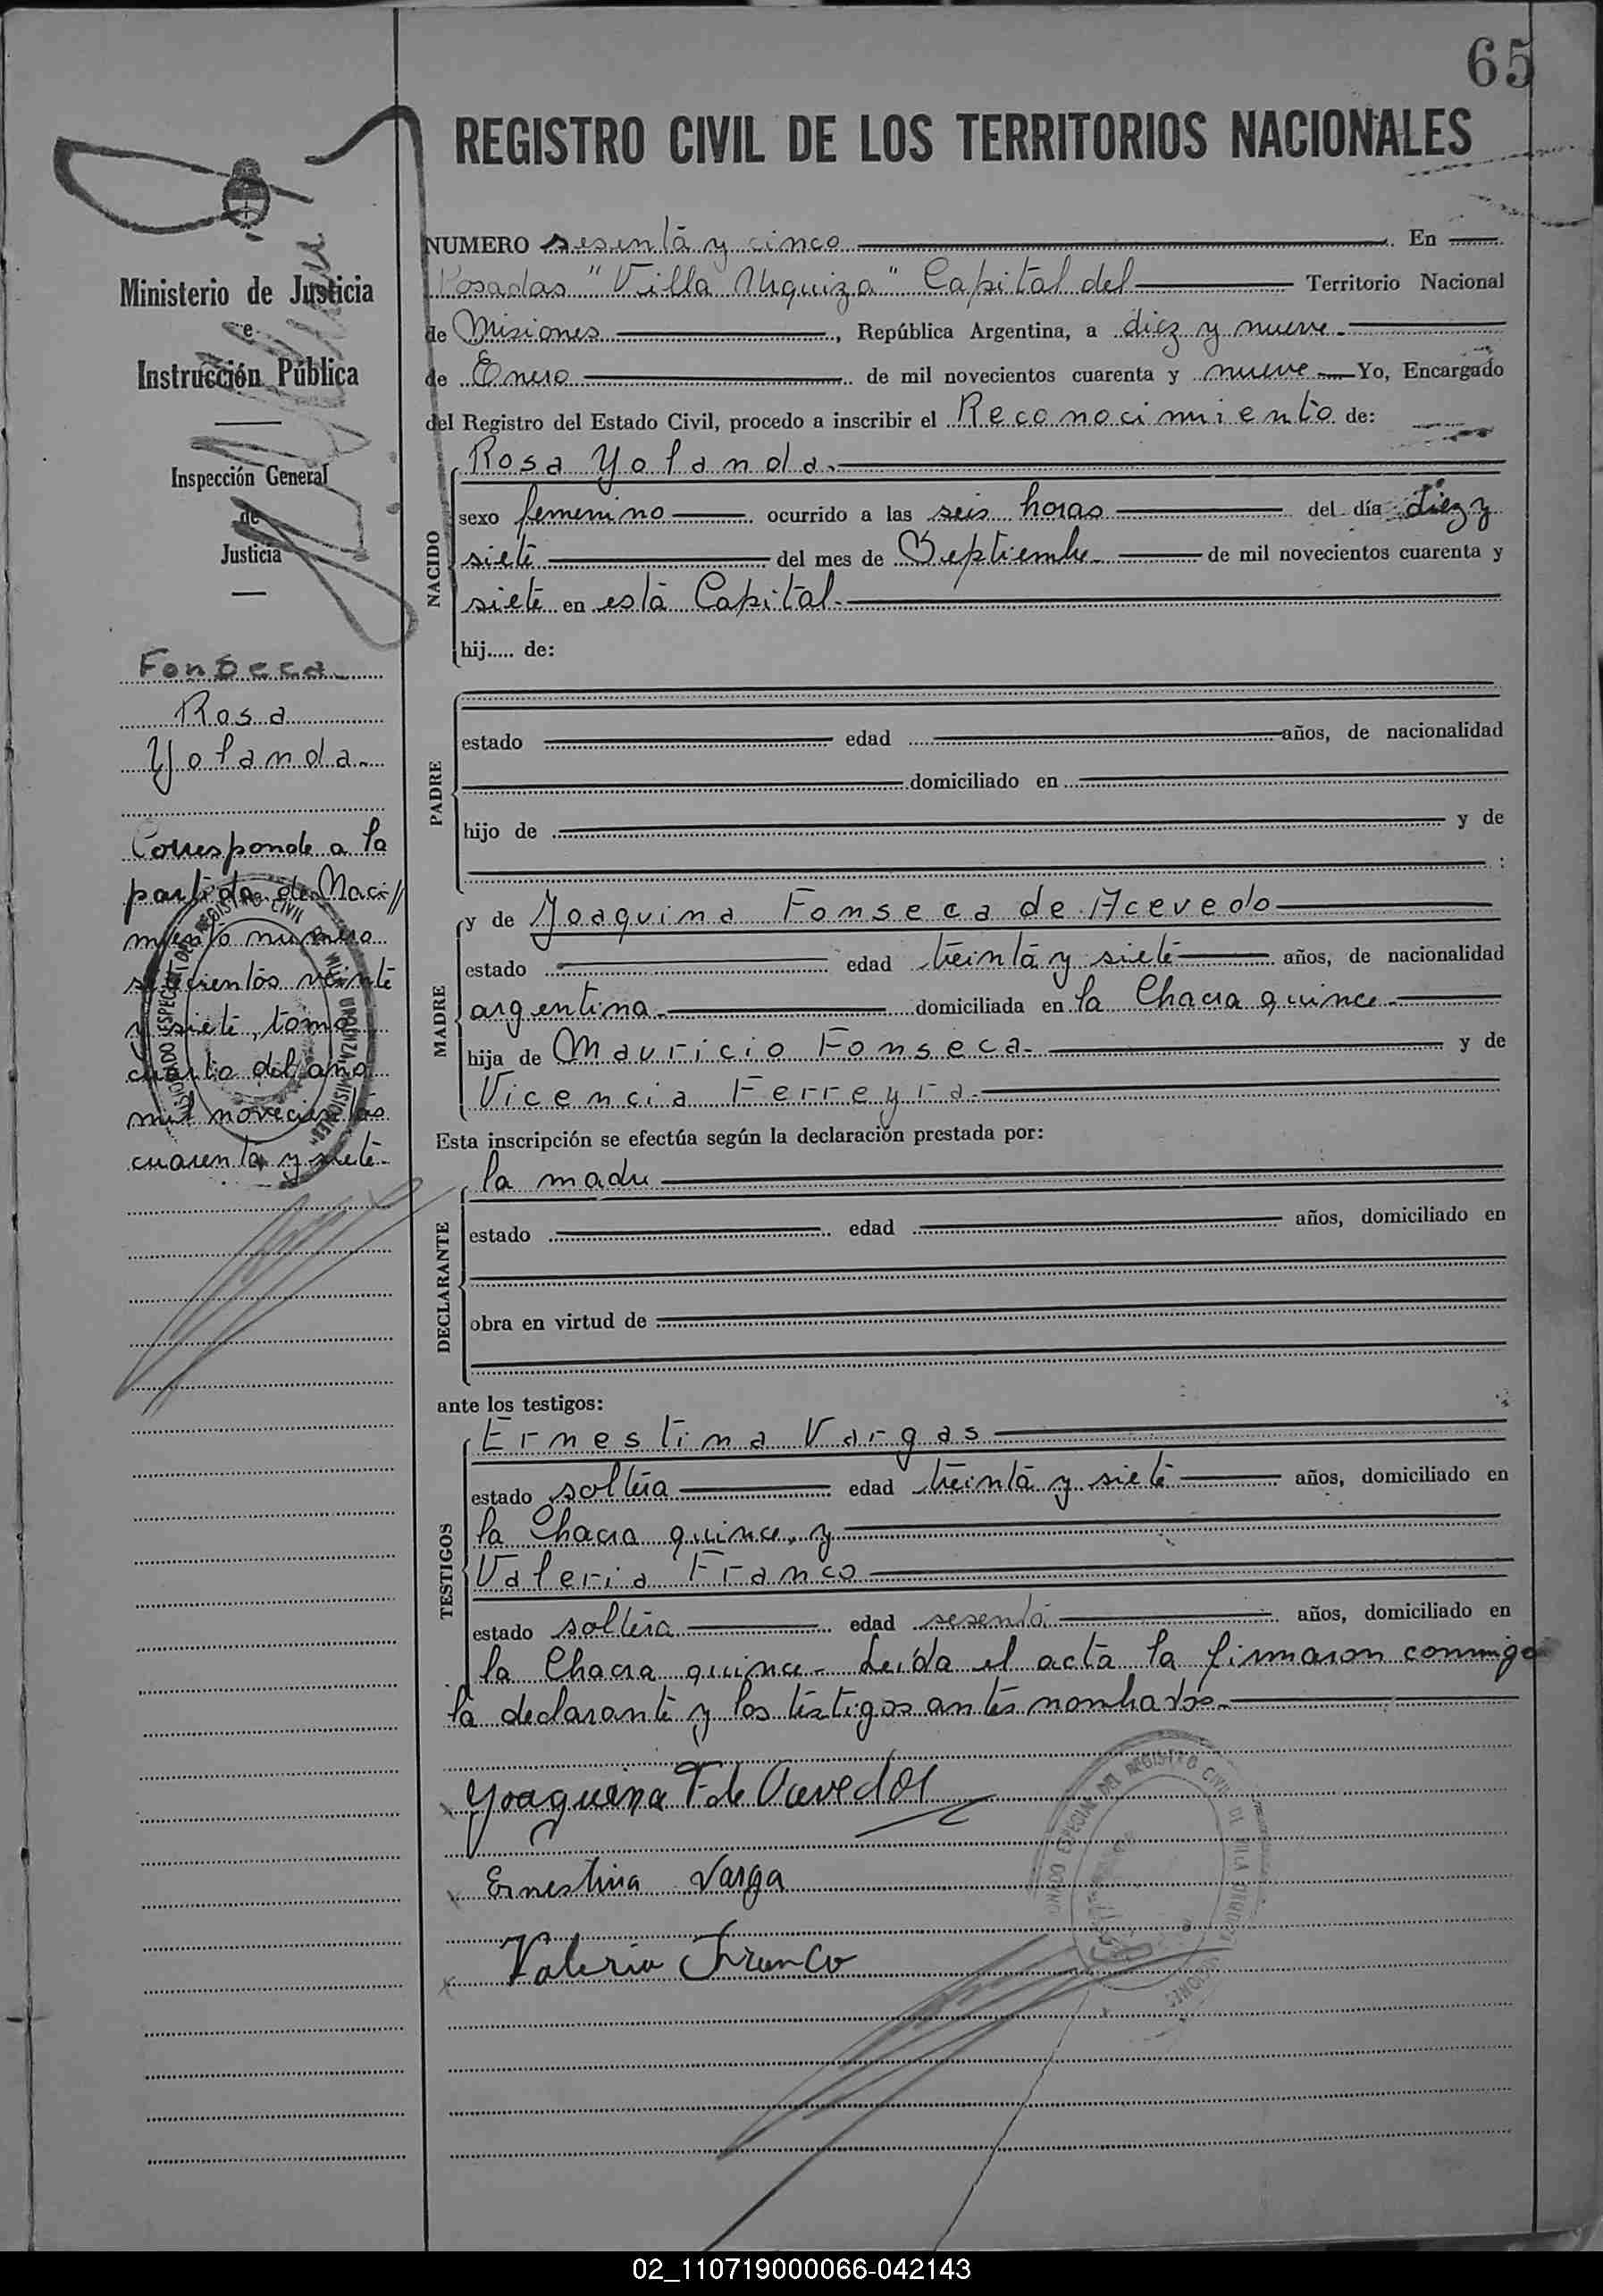 65
REGISTRO CIVIL DE LOS TERRITORIOS NACIONALES
Ministerio de Justicia
e
Instrucción Pública
Inspección General
de
Justicia
Fonseca
Rosa
Yolanda.
Corresponde a la
partida de Naci//
miento numero
setecientos veinte
y siete, tomo
cuarto del año
mil novecientos
cuarenta y siete.
NUMERO sesenta y cinco. En
Posadas "Villa Urquiza" Capital del Territorio Nacional
de Misiones, República Argentina, a diez y nueve.
de Enero de mil novecientos cuarenta y nueve Yo, Encargado
del Registro del Estado Civil, procedo a inscribir el Reconocimiento de:
Rosa Yolanda.
NACIDO
sexo femenino ocurrido a las seis horas del día diez y
siete del mes de Septiembre de mil novecientos cuarenta y
siete en esta Capital.
hij..... de:
PADRE
estado edad años, de nacionalidad
domiciliado en
hijo de y de
:
MADRE
y de Joaquina Fonseca de Acevedo
estado edad treinta y siete años, de nacionalidad
argentina. domiciliada en la Chacra quince.
hija de Mauricio Fonseca. y de
Vicencia Ferreyra.
Esta inscripción se efectúa según la declaración prestada por:
DECLARANTE
la madre
estado edad años, domiciliado en
obra en virtud de
ante los testigos:
TESTIGOS
Ernestina Vargas
estado soltera edad treinta y siete años, domiciliado en
la Chacra quince, y
Valeria Franco
estado soltera edad sesenta años, domiciliado en
la Chacra quince. Leída el acta la firmaron conmigo
la declarante y los testigos antes nombrados.
Yoaquina F. de Acevedo
Ernestina Varga
Valeria Franco
ESPECIAL DEL REGISTRO CIVIL DE VILLA URQUIZA MISIONES
02_110719000066-042143